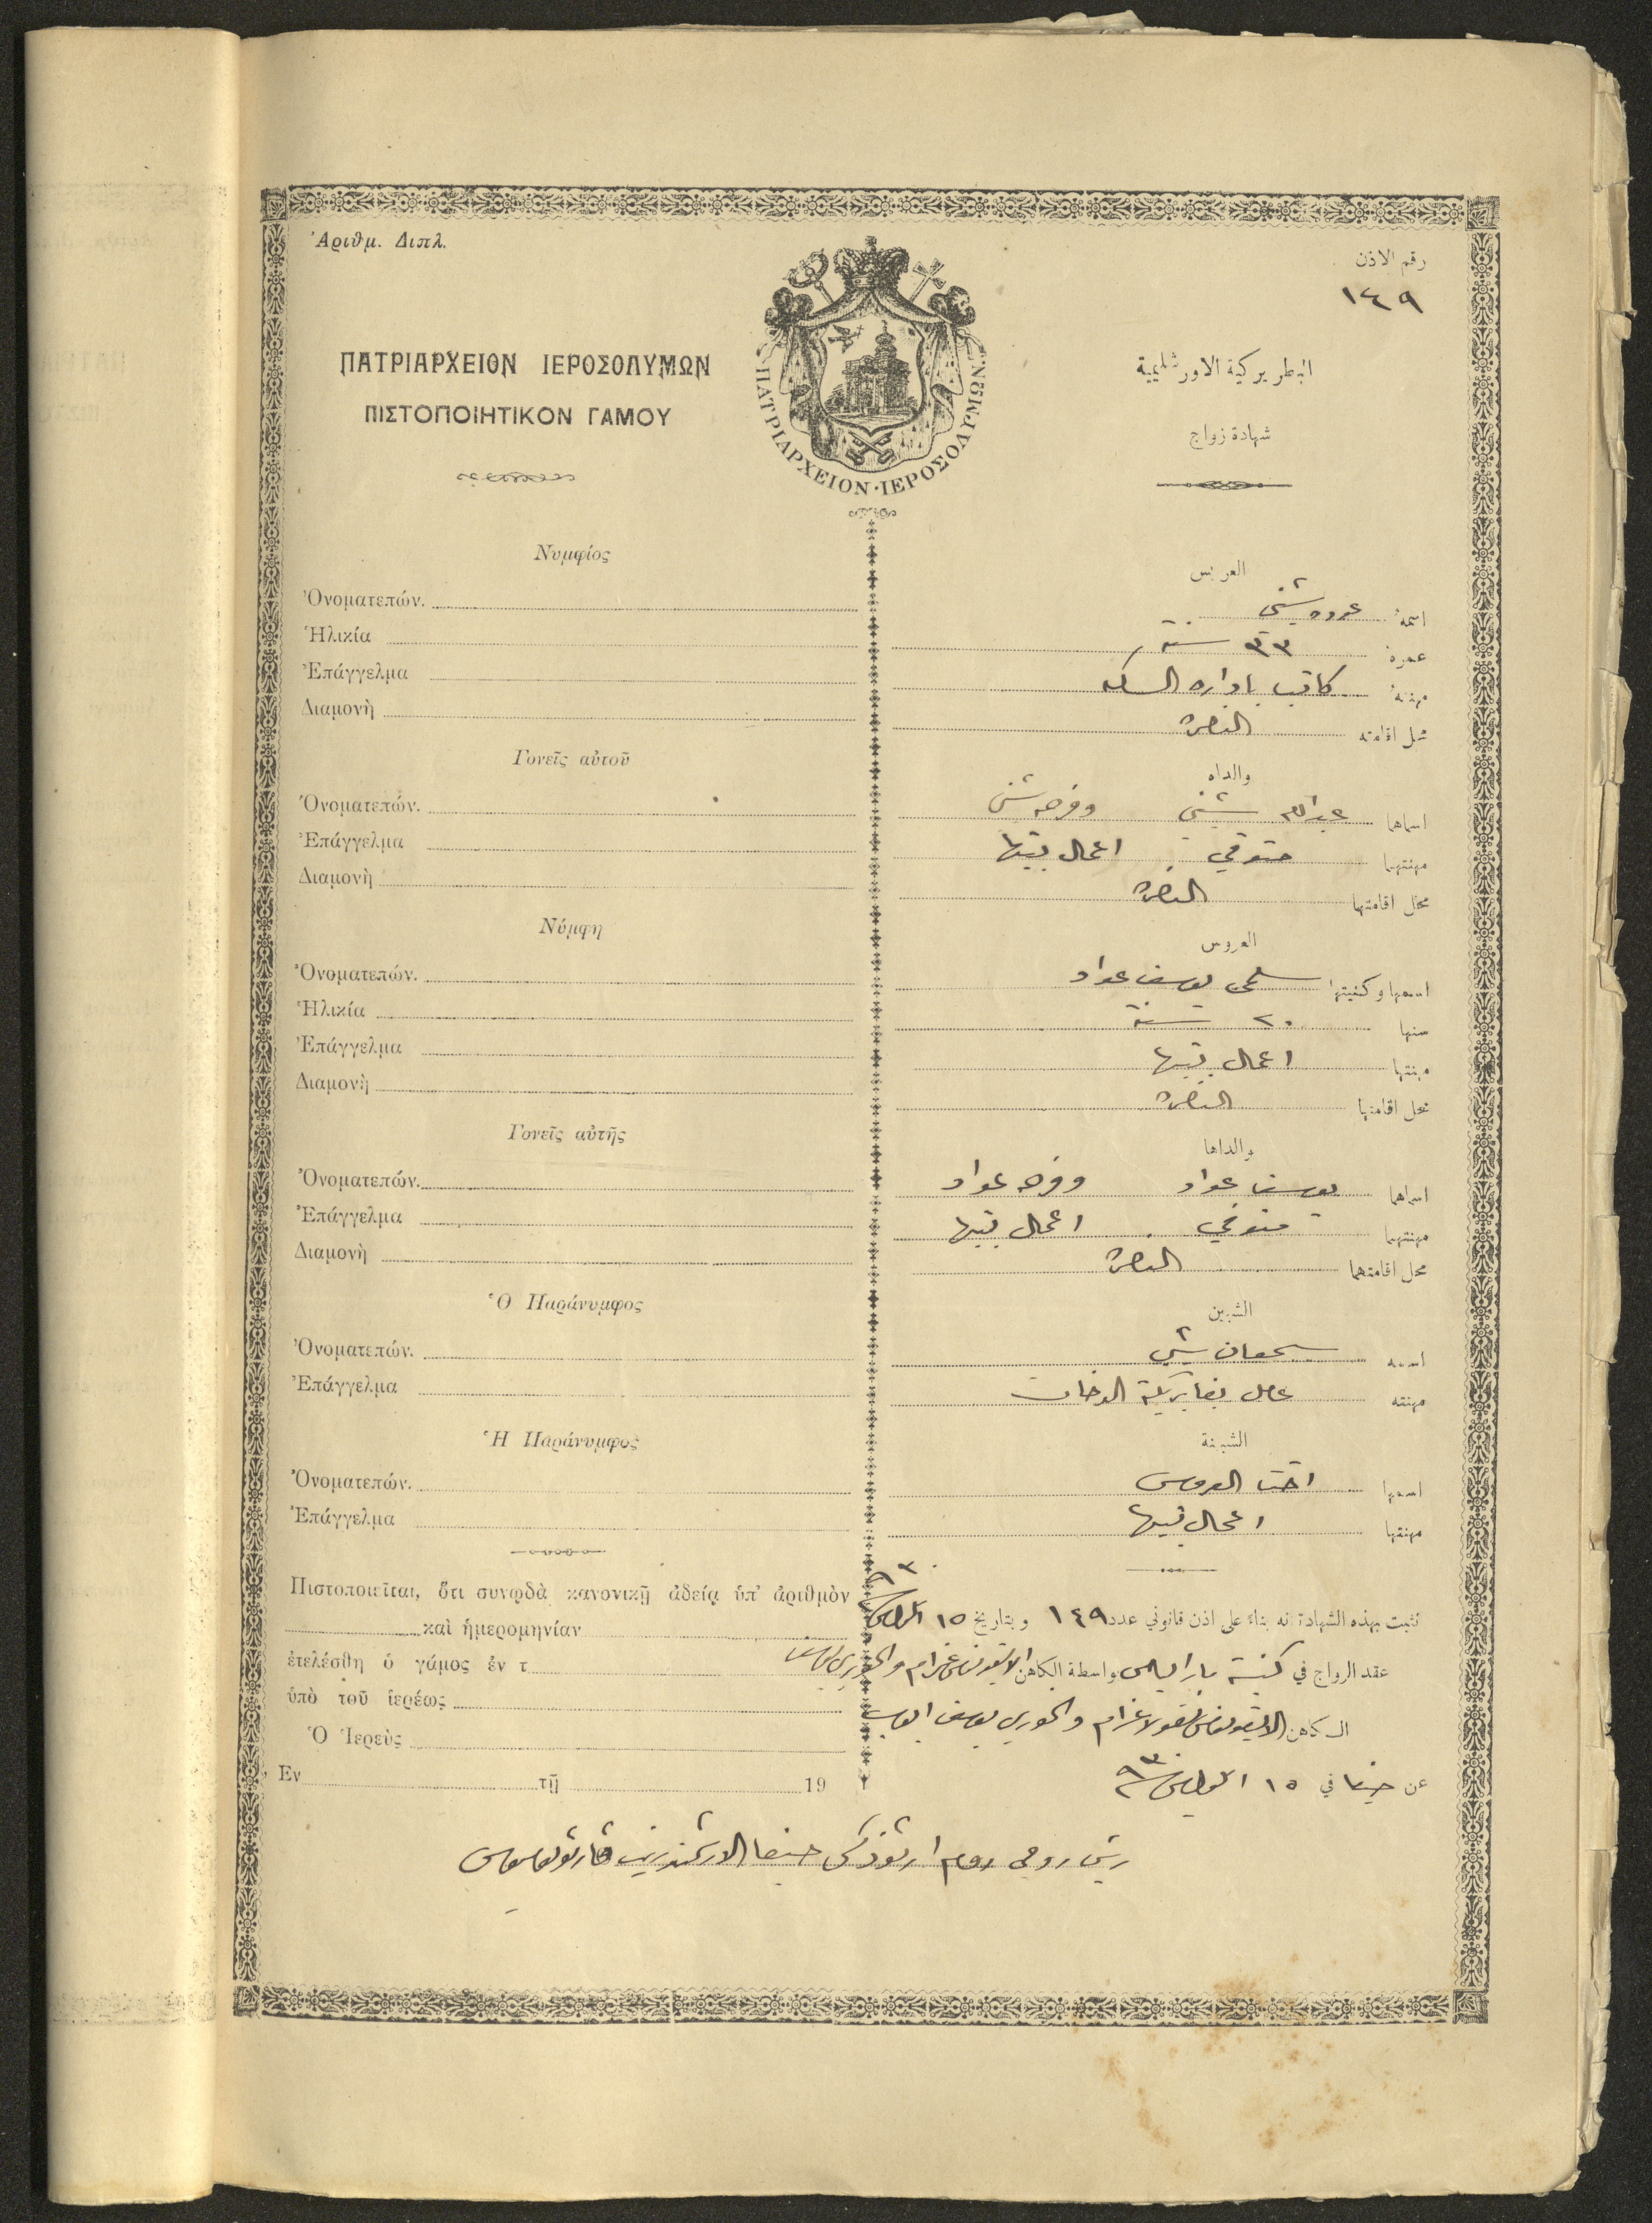 Ἀριθμ. Διπλ.
رقم الاذن
١٤٩
ΠΑΤΡΙΑΡΧΕΙΟΝ ΙΕΡΟΣΟΛΥΜΩΝ
ΠΙΣΤΟΠΟΙΗΤΙΚΟΝ ΓΑΜΟΥ
ΠΑΤΡΙΑΡΧΕΙΟΝ·ΙΕΡΟΣΟΛΥΜΩΝ
البطريركية الاورشليمية
شهادة زواج
Νυμφίος
Ὀνοματεπών.
Ἡλικία
Ἐπάγγελμα
Διαμονὴ
Γονεῖς αὐτοῦ
Ὀνοματεπών.
Ἐπάγγελμα
Διαμονὴ
Νύμφη
Ὀνοματεπών.
Ἡλικία
Ἐπάγγελμα
Διαμονὴ
Γονεῖς αὐτῆς
Ὀνοματεπών.
Ἐπάγγελμα
Διαμονὴ
Ὁ Παράνυμφος
Ὀνοματεπών.
Ἐπάγγελμα
Ἡ Παράνυμφος
Ὀνοματεπών.
Ἐπάγγελμα
Πιστοποιεῖται, ὅτι συνῳδὰ κανονικῇ ἀδείᾳ ὑπ' ἀριθμὸν
καὶ ἡμερομηνίαν
ἐτελέσθη ὁ γάμος ἐν τ
ὑπὸ τοῦ ἱερέως
Ὁ Ἱερεὺς
Ἐν τῇ 19
العريس
اسمهُ
عمرهُ ٣٣ سنة
مهنتهُ كاتب بادارة السكه
محل اقامته الناصرة
والداه
اسماهما عبدالله
مهنتهما متوفي اعمال بيتها
محل اقامتهما الناصرة
العروس
اسمها وكنيتها سلمى يوسف عواد
سنها ٢٠ سنة
مهنتها اعمال بيتها
محل اقامتها الناصرة
والداها
اسماهما يوسف عواد وفرحه عواد
مهنتهما متوفي اعمال بيتها
محل اقامتهما الناصرة
الشبين
اسمه سمعان
مهنته عامل بفابريكة الدخان
الشبينة
اسمها اخت العروس
مهنتها اعمال بيتها
نثبت بهذه الشهادة انه بناءً على اذن قانوني عدد ١٤٩ وبتاريخ ١٥
عقد الزواج في كنيسة مار الياس بواسطة الكاهن
الكاهن والخوري يوسف
عن حيفا في ١٥
رئيس روحي روم ارثوذكس حيفا الارشمندريت